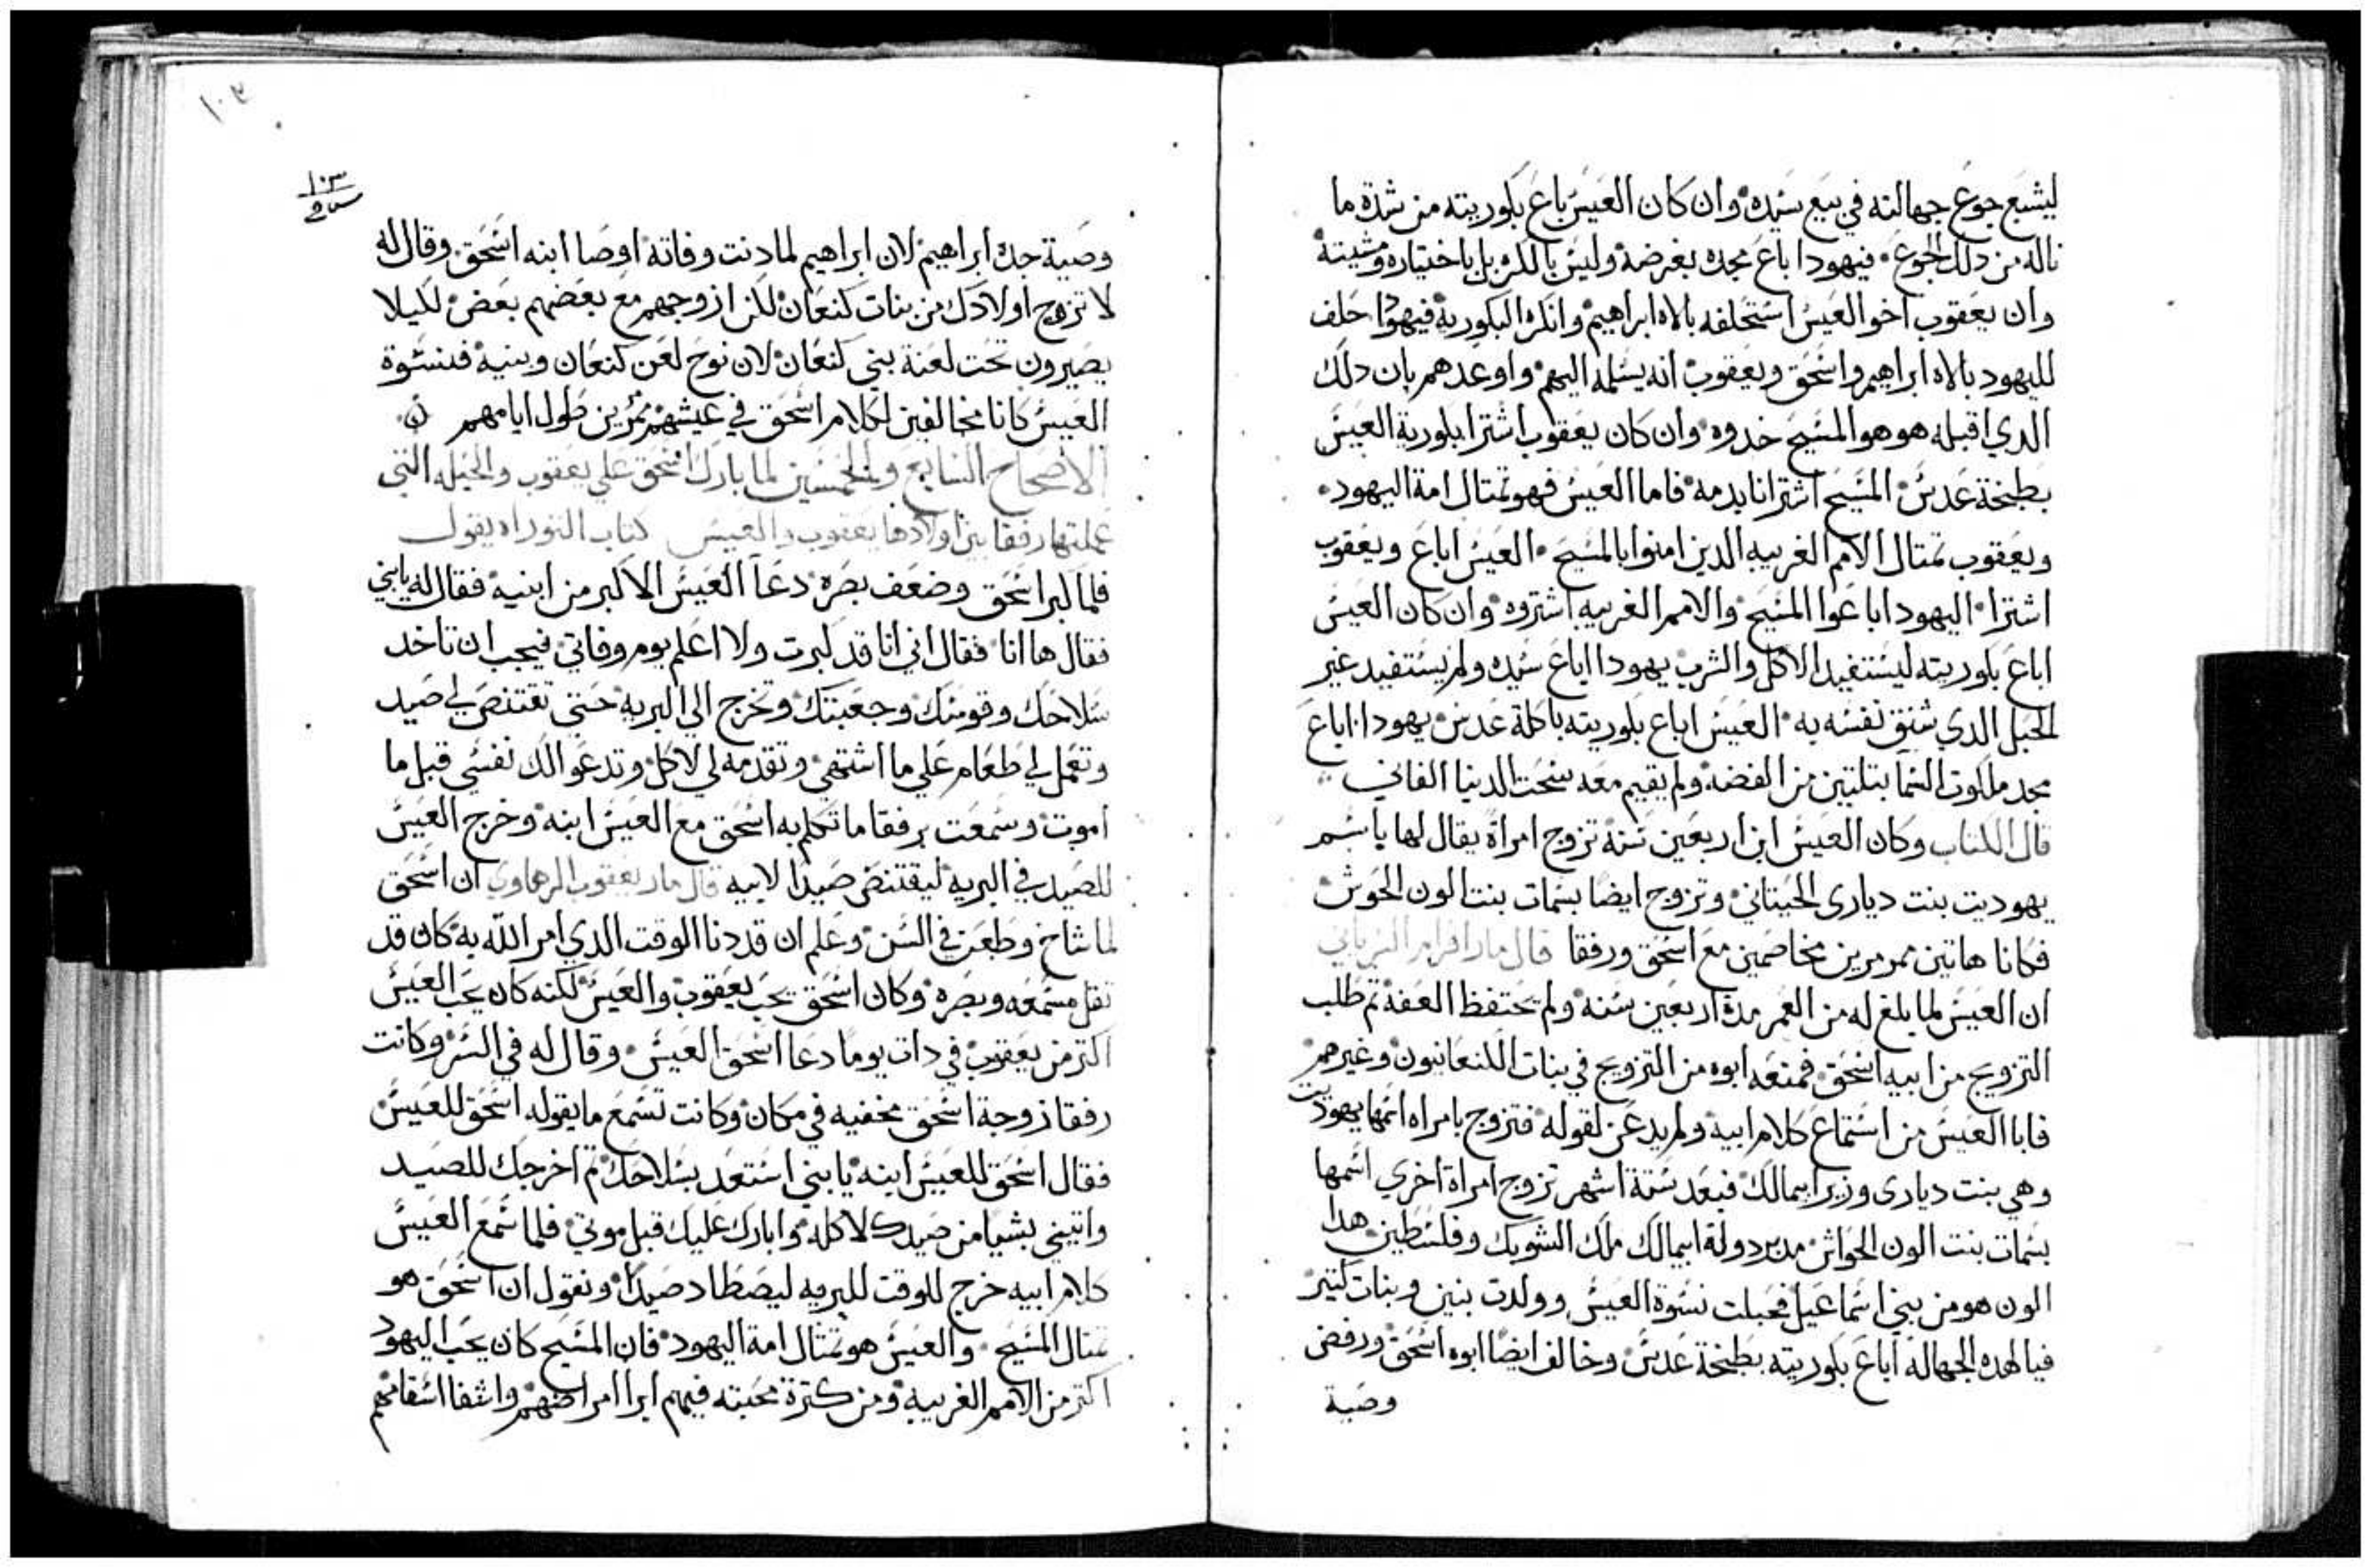 ليشبع جوع جهالته في بيع سيده وان كان العيس باع بكوريته من شدة ما
ناله من دلك الجوع فيهودا اباع مجده بغرضه وليس بالكره بل باختياره ومشيته
وان يعقوب اخو العيس استحلفه بالاه ابراهيم وانكره البكورية فيهودا حلف
لليهود بالاه ابراهيم واسحق ويعقوب انه يسلمه اليهم واوعدهم بان دلك
الدي اقبله هو هو المسيح خدوه وان كان يعقوب اشترا بكورية العيس
بطبخة عدس المسيح اشترانا بدمه فاما العيس فهو تمتال امة اليهود
ويعقوب تمتال الامم الغريبه الدين امنوا بالمسيح العيس اباع ويعقوب
اشترا اليهود اباعوا المسيح والامم الغريبه اشتروه وان كان العيس
اباع بكوريته ليستفيد الاكل والشرب يهودا اباع سيده ولم يستفيد غير
الحبل الدي شنق نفسه به العيس اباع بكوريته باكلة عدس يهودا اباع
مجد ملكوت السما بتلتين من الفضه ولم يقيم معه سحت الدينا الفاني
قال الكتاب وكان العيس ابن اربعين سنة تزوج امراة يقال لها ياسم
يهوديت بنت ديارى الحيتاني وتزوج ايضا بسمات بنت الون الحوش
فكانا هاتين نمرمرين مخاصمين مع اسحق ورفقا قال مار افرام السرياني
ان العيس لما بلغ له من العمر مدة اربعين سنه ولم يحتفظ العفه تم طلب
التزويج من ابيه اسحق فمنعه ابوه من التزويج في بنات الكنعانيون وغيرهم
فابا العيس من استماع كلام ابيه ولم يدعن لقوله فتزوج بامراه اسمها يهوديت
وهي بنت ديارى وزير ابيمالك فبعد ستة اشهر تزوج امراة اخري اسمها
بسمات بنت الون الحواش مدبر دولة ابيمالك ملك الشوبك وفلسطين هدا
الون هو من بني اسماعيل فحبلت نسوة العيس وولدت بنين وبنات كتير
فيا لهده الجهاله اباع بكوريته بطبخة عدس وخالف ايضا ابوه اسحق ورفض
وصية
١٠٣
١٠٣
وصية جده ابراهيم لان ابراهيم لما دنت وفاته اوصا ابنه اسحق وقال له
لا تزوج اولادك من بنات كنعان لكن ازوجهم مع بعضهم بعض لكيلا
يصيرون تحت لعنة بني كنعان لان نوح لعن كنعان وبنيه فنسوة
العيس كانا مخالفين لكلام اسحق في عيشهم نمرين طول ايامهم
الاصحاح السابع والخمسين لما بارك اسحق علي يعقوب والحيله التي
عملتها رفقا بين اولادها يعقوب والعيس كتاب التوراه يقول
فلما كبر اسحق وضعف بصره دعا العيس الاكبر من ابنيه فقال له يابني
فقال ها انا فقال اني انا قد كبرت ولا اعلم يوم وفاتي فيجب ان تاخد
سلاحك وقوسك وجعبتك وتخرج الي البريه حتي تقتنص لي صيد
وتعمل لي طعام علي ما اشتهي وتقدمه لي لاكل وتدعوا لك نفسي قبل ما
اموت وسمعت برفقا ما تكلم به اسحق مع العيس ابنه وخرج العيس
للصيد في البريه ليقتنص صيدا لابيه قال مار يعقوب الرهاوي ان اسحق
لما شاخ وطعن في السن وعلم ان قد دنا الوقت الدي امر الله به كان قد
تقل مسمعه وبصره وكان اسحق يحب يعقوب والعيس لكنه كان يحب العيس
اكتر من يعقوب في دات يوما دعا اسحق العيس وقال له في السر وكانت
رفقا زوجة اسحق مخفيه في مكان وكانت تسمع ما يقوله اسحق للعيس
فقال اسحق للعيس ابنه يا بني استعد بسلاحك تم اخرجك للصيد
واتيني بشيا من صيدك لاكله وابارك عليك قبل موتي فلما سمع العيس
كلام ابيه خرج للوقت للبريه ليصطاد صيدا ونقول ان اسحق هو
تمتال المسيح والعيس هو تمثال امة اليهود فان المسيح كان يحب اليهود
اكتر من الامم الغريبه ومن كترة محبته فيهم ابرا امراضهم واشفا اسقامهم